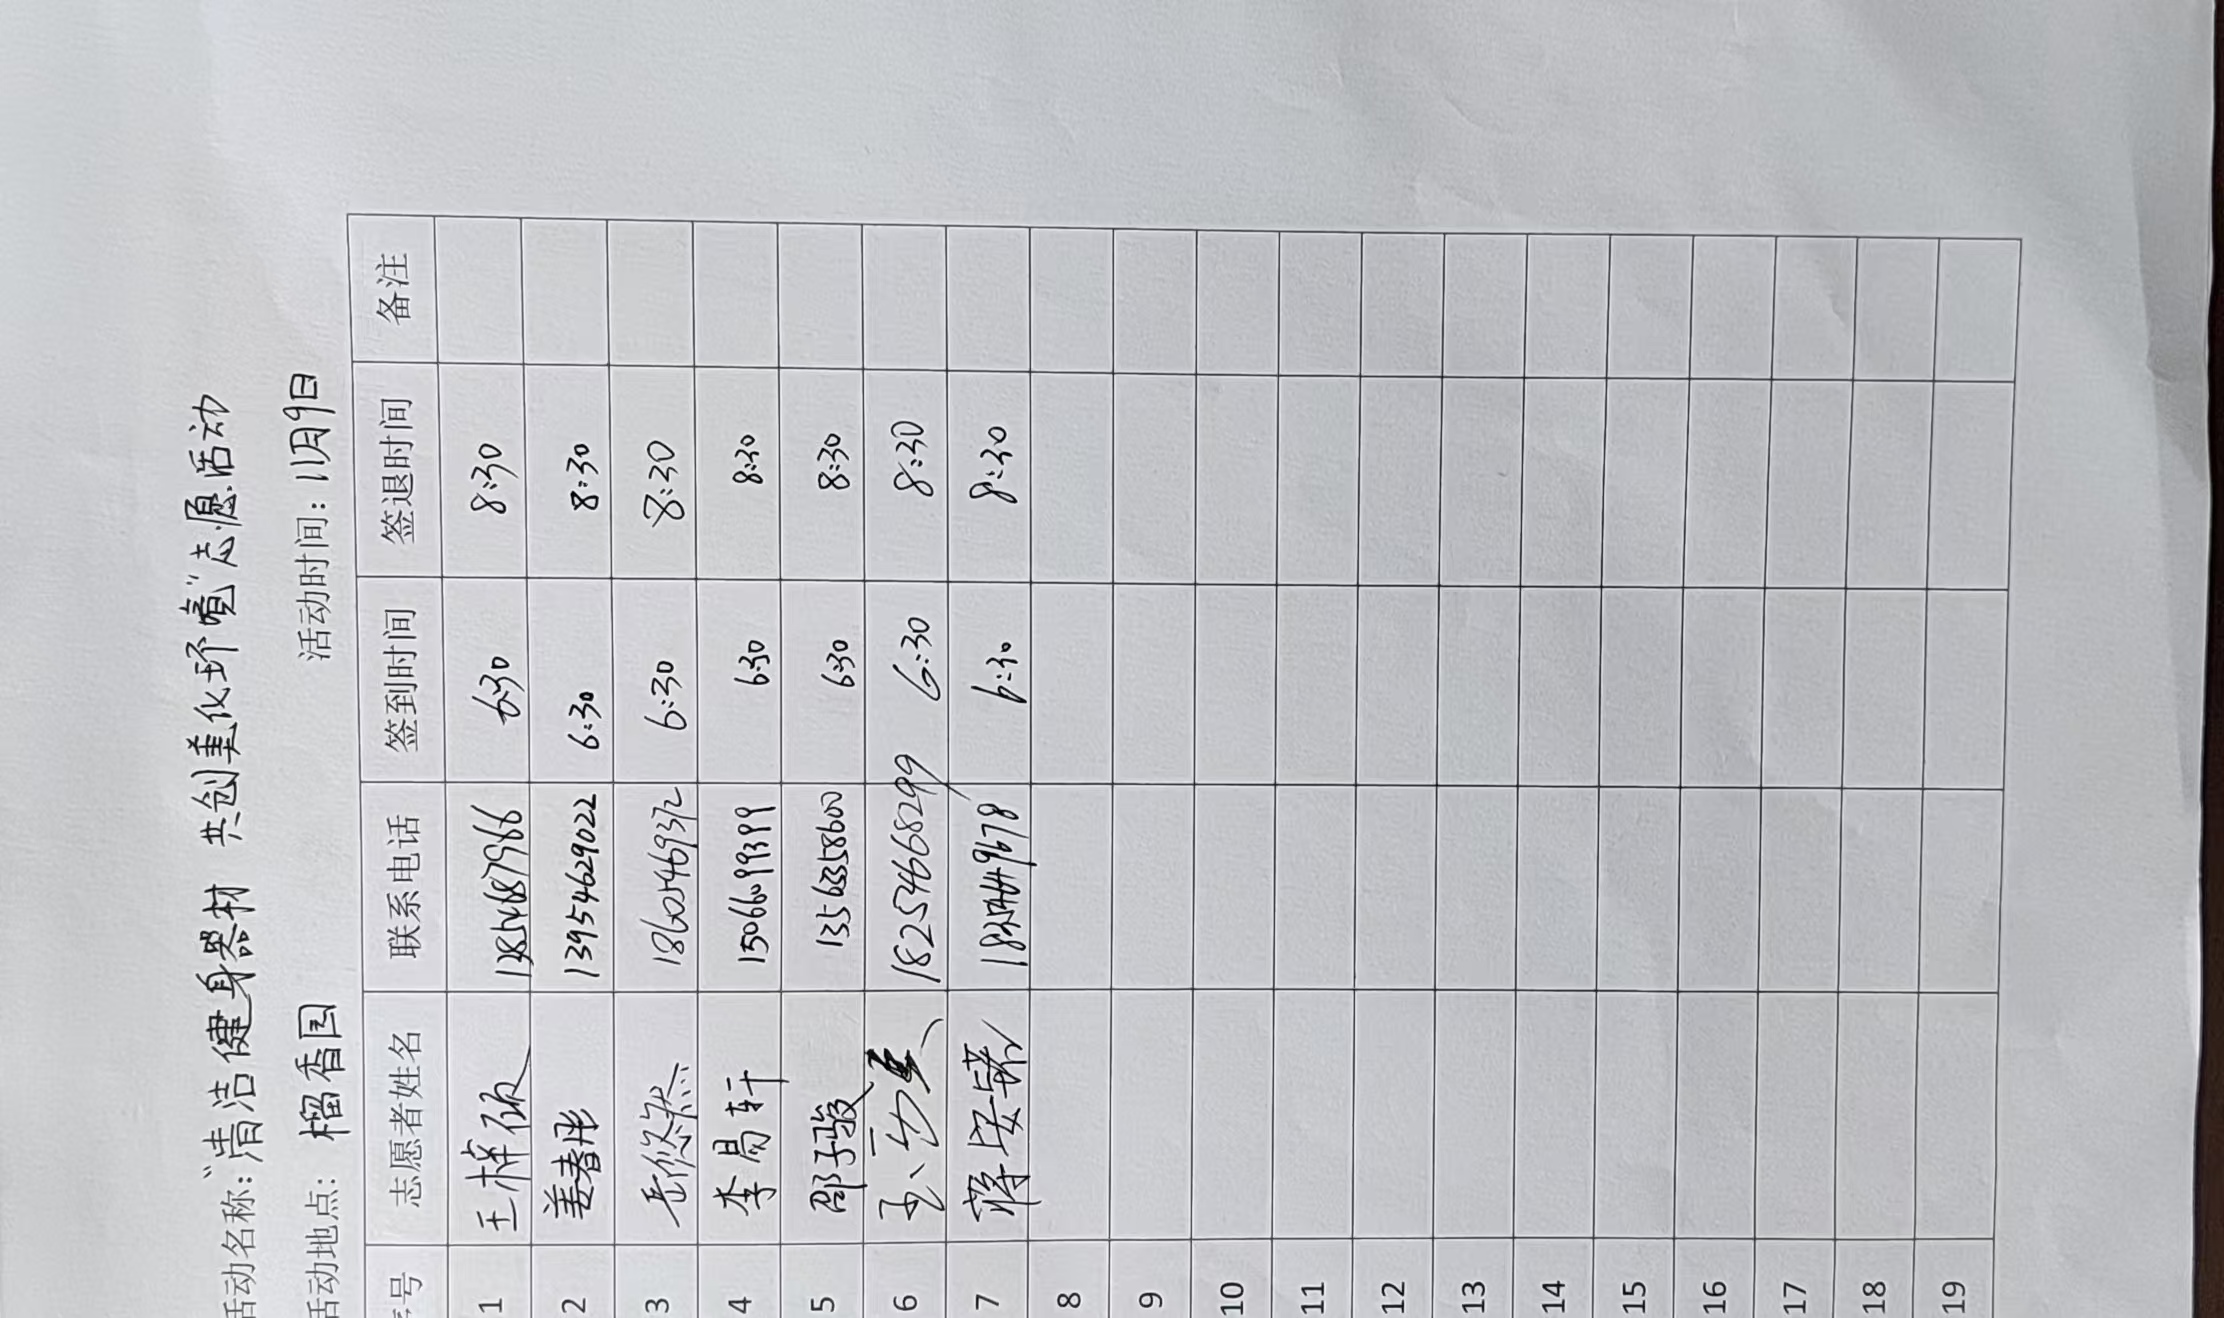 活动名称："清洁健身器材 共创美化环境"志愿活动
活动地点：榴香园 活动时间：11月9日
序号 志愿者姓名 联系电话 签到时间 签退时间 备注
1 王梓 6:30 8:30
2 姜春彤 13954629022 6:30 8:30
3 岳悠然 6:30 8:30
4 李易轩 15066099399 6:30 8:30
5 邵子骏 13563358600 6:30 8:30
6 18254668299 6:30 8:30
7 蒋安诺 18254649678 6:30 8:30
8
9
10
11
12
13
14
15
16
17
18
19